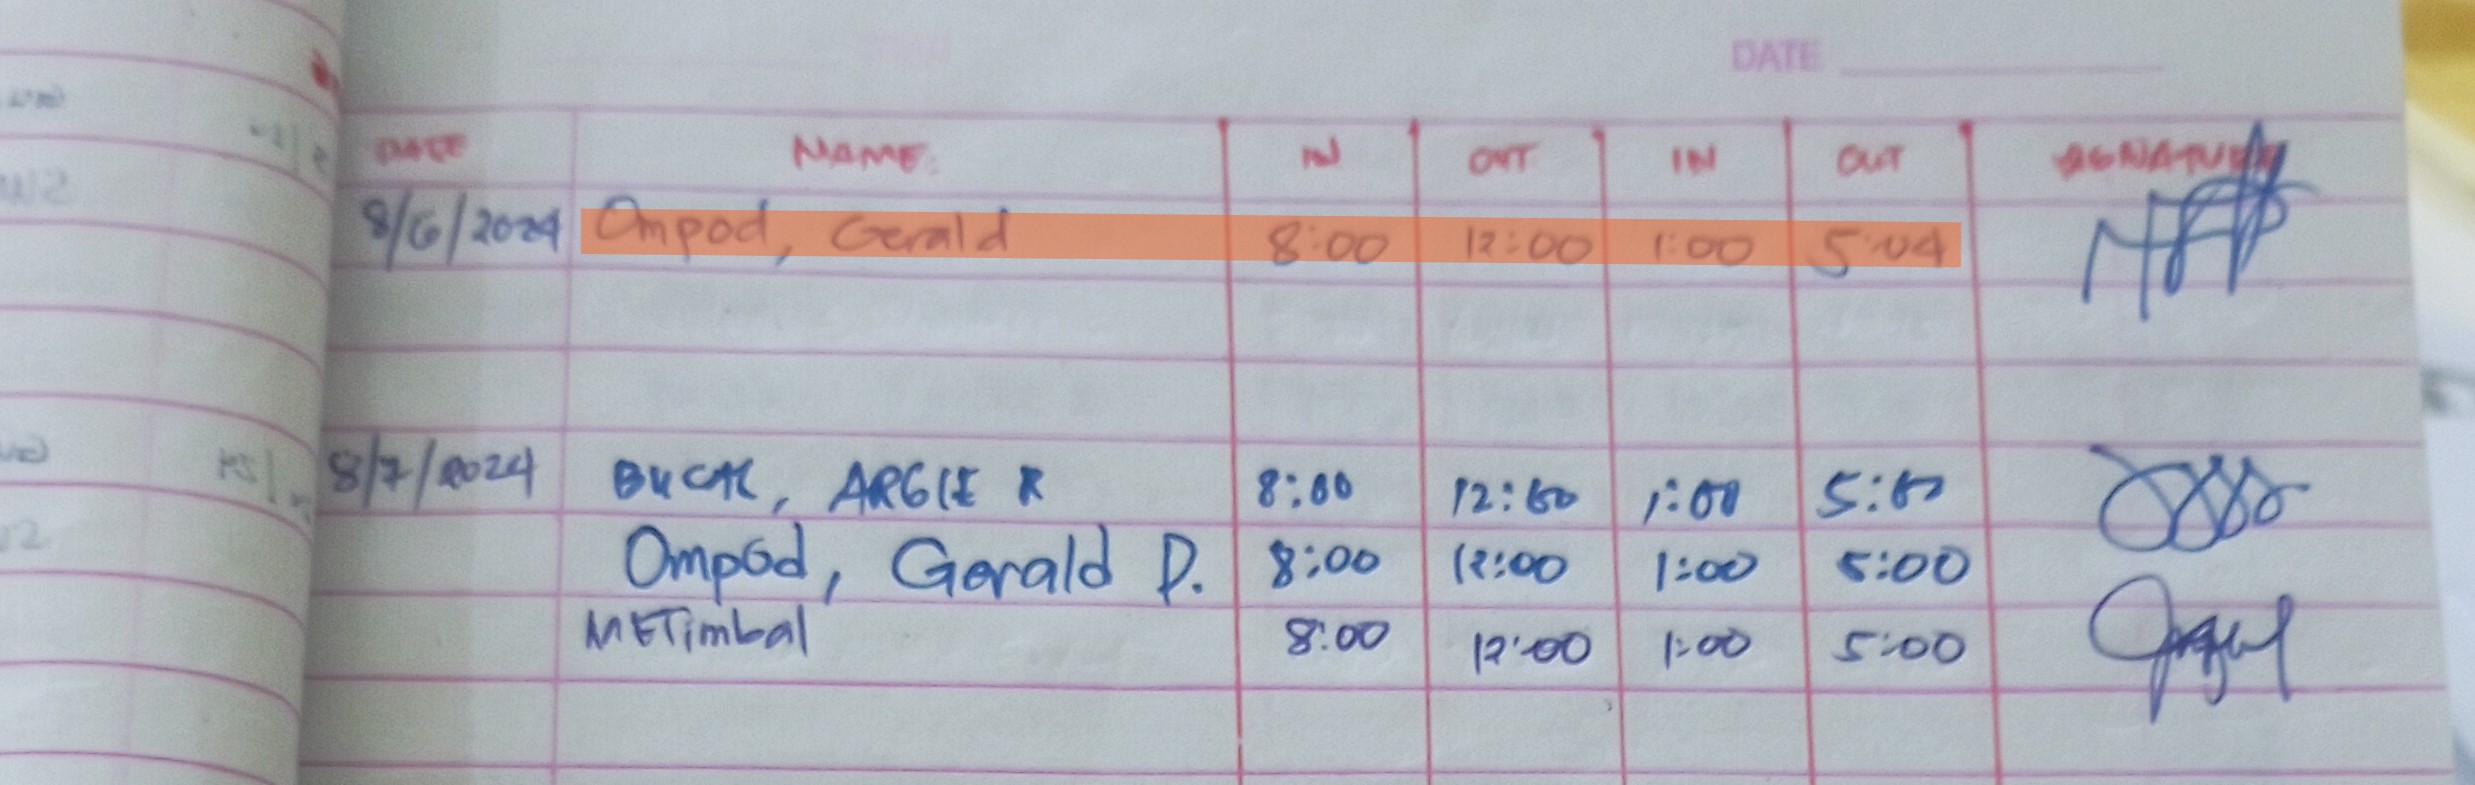 DATE
DATE NAME: IN OUT IN OUT SIGNATURE
8/6/2024 Ompod, Gerald 8:00 12:00 1:00 5:04
8/7/2024 ARGIE R 8:00 12:00 1:00 5:00
Ompod, Gerald D. 8:00 12:00 1:00 5:00
METimbal 8:00 12:00 1:00 5:00